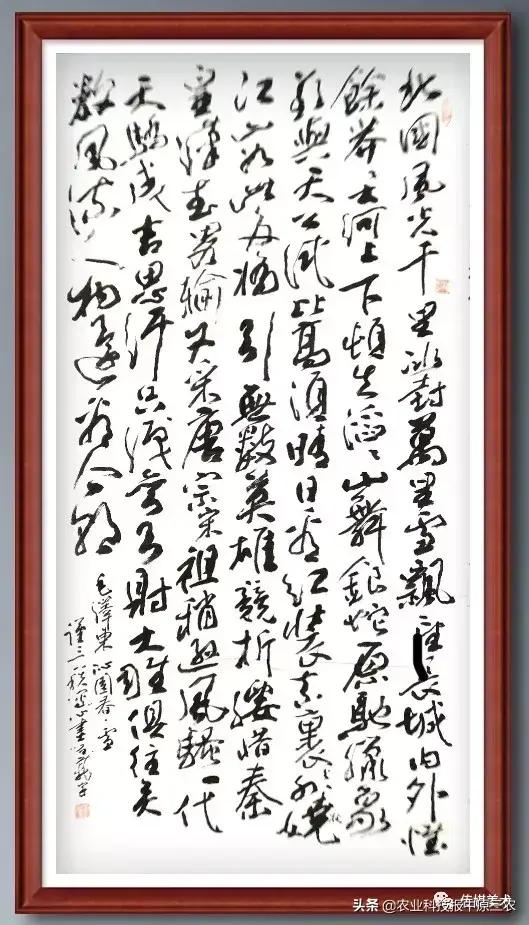 北國風光千里冰封萬里雪飄望長城內外惟
餘莽々大河上下頓失滔々山舞銀蛇原馳蠟象
欲與天公試比高須晴日看紅裝素裹分外妖嬈
江山如此多嬌引無數英雄競折腰惜秦
皇漢武略輸文采唐宗宋祖稍遜風騷一代
天驕成吉思汗只識彎弓射大雕俱往矣
數風流人物還看今朝
毛澤東沁園春雪
传媒美术
头条 @农业科技报中原三农